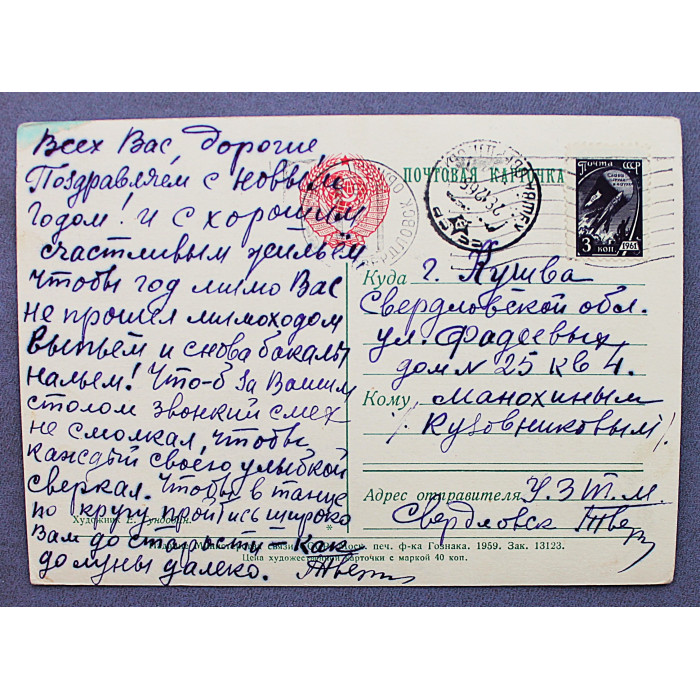 Всех Вас дорогие
Поздравляем с новым
годом! и с хорошим
счастливым жильём
чтобы год мимо Вас
не прошел мимоходом
Выпьем и снова бакалы
нальем! Что-б за Вашим
столом звонкий смех
не смолкал, чтобы
каждый своею улыбкой
сверкал. Чтобы в танце
по кругу пройтись широко
Вам до старости — как
до луны далеко.
ПОЧТОВАЯ КАРТОЧКА
Почта СССР
3 коп.
1961
Куда г. Кушва
Свердловской обл.
ул. Фадеевых
дом N 25 кв 4.
Кому Манохиным
Кузовниковым
Адрес отправителя У.З.Т.М.
Свердловск
Художник Е. Гундобин.
связи печ. ф-ка Гознака. 1959. Зак. 13123.
Цена художественной карточки с маркой 40 коп.